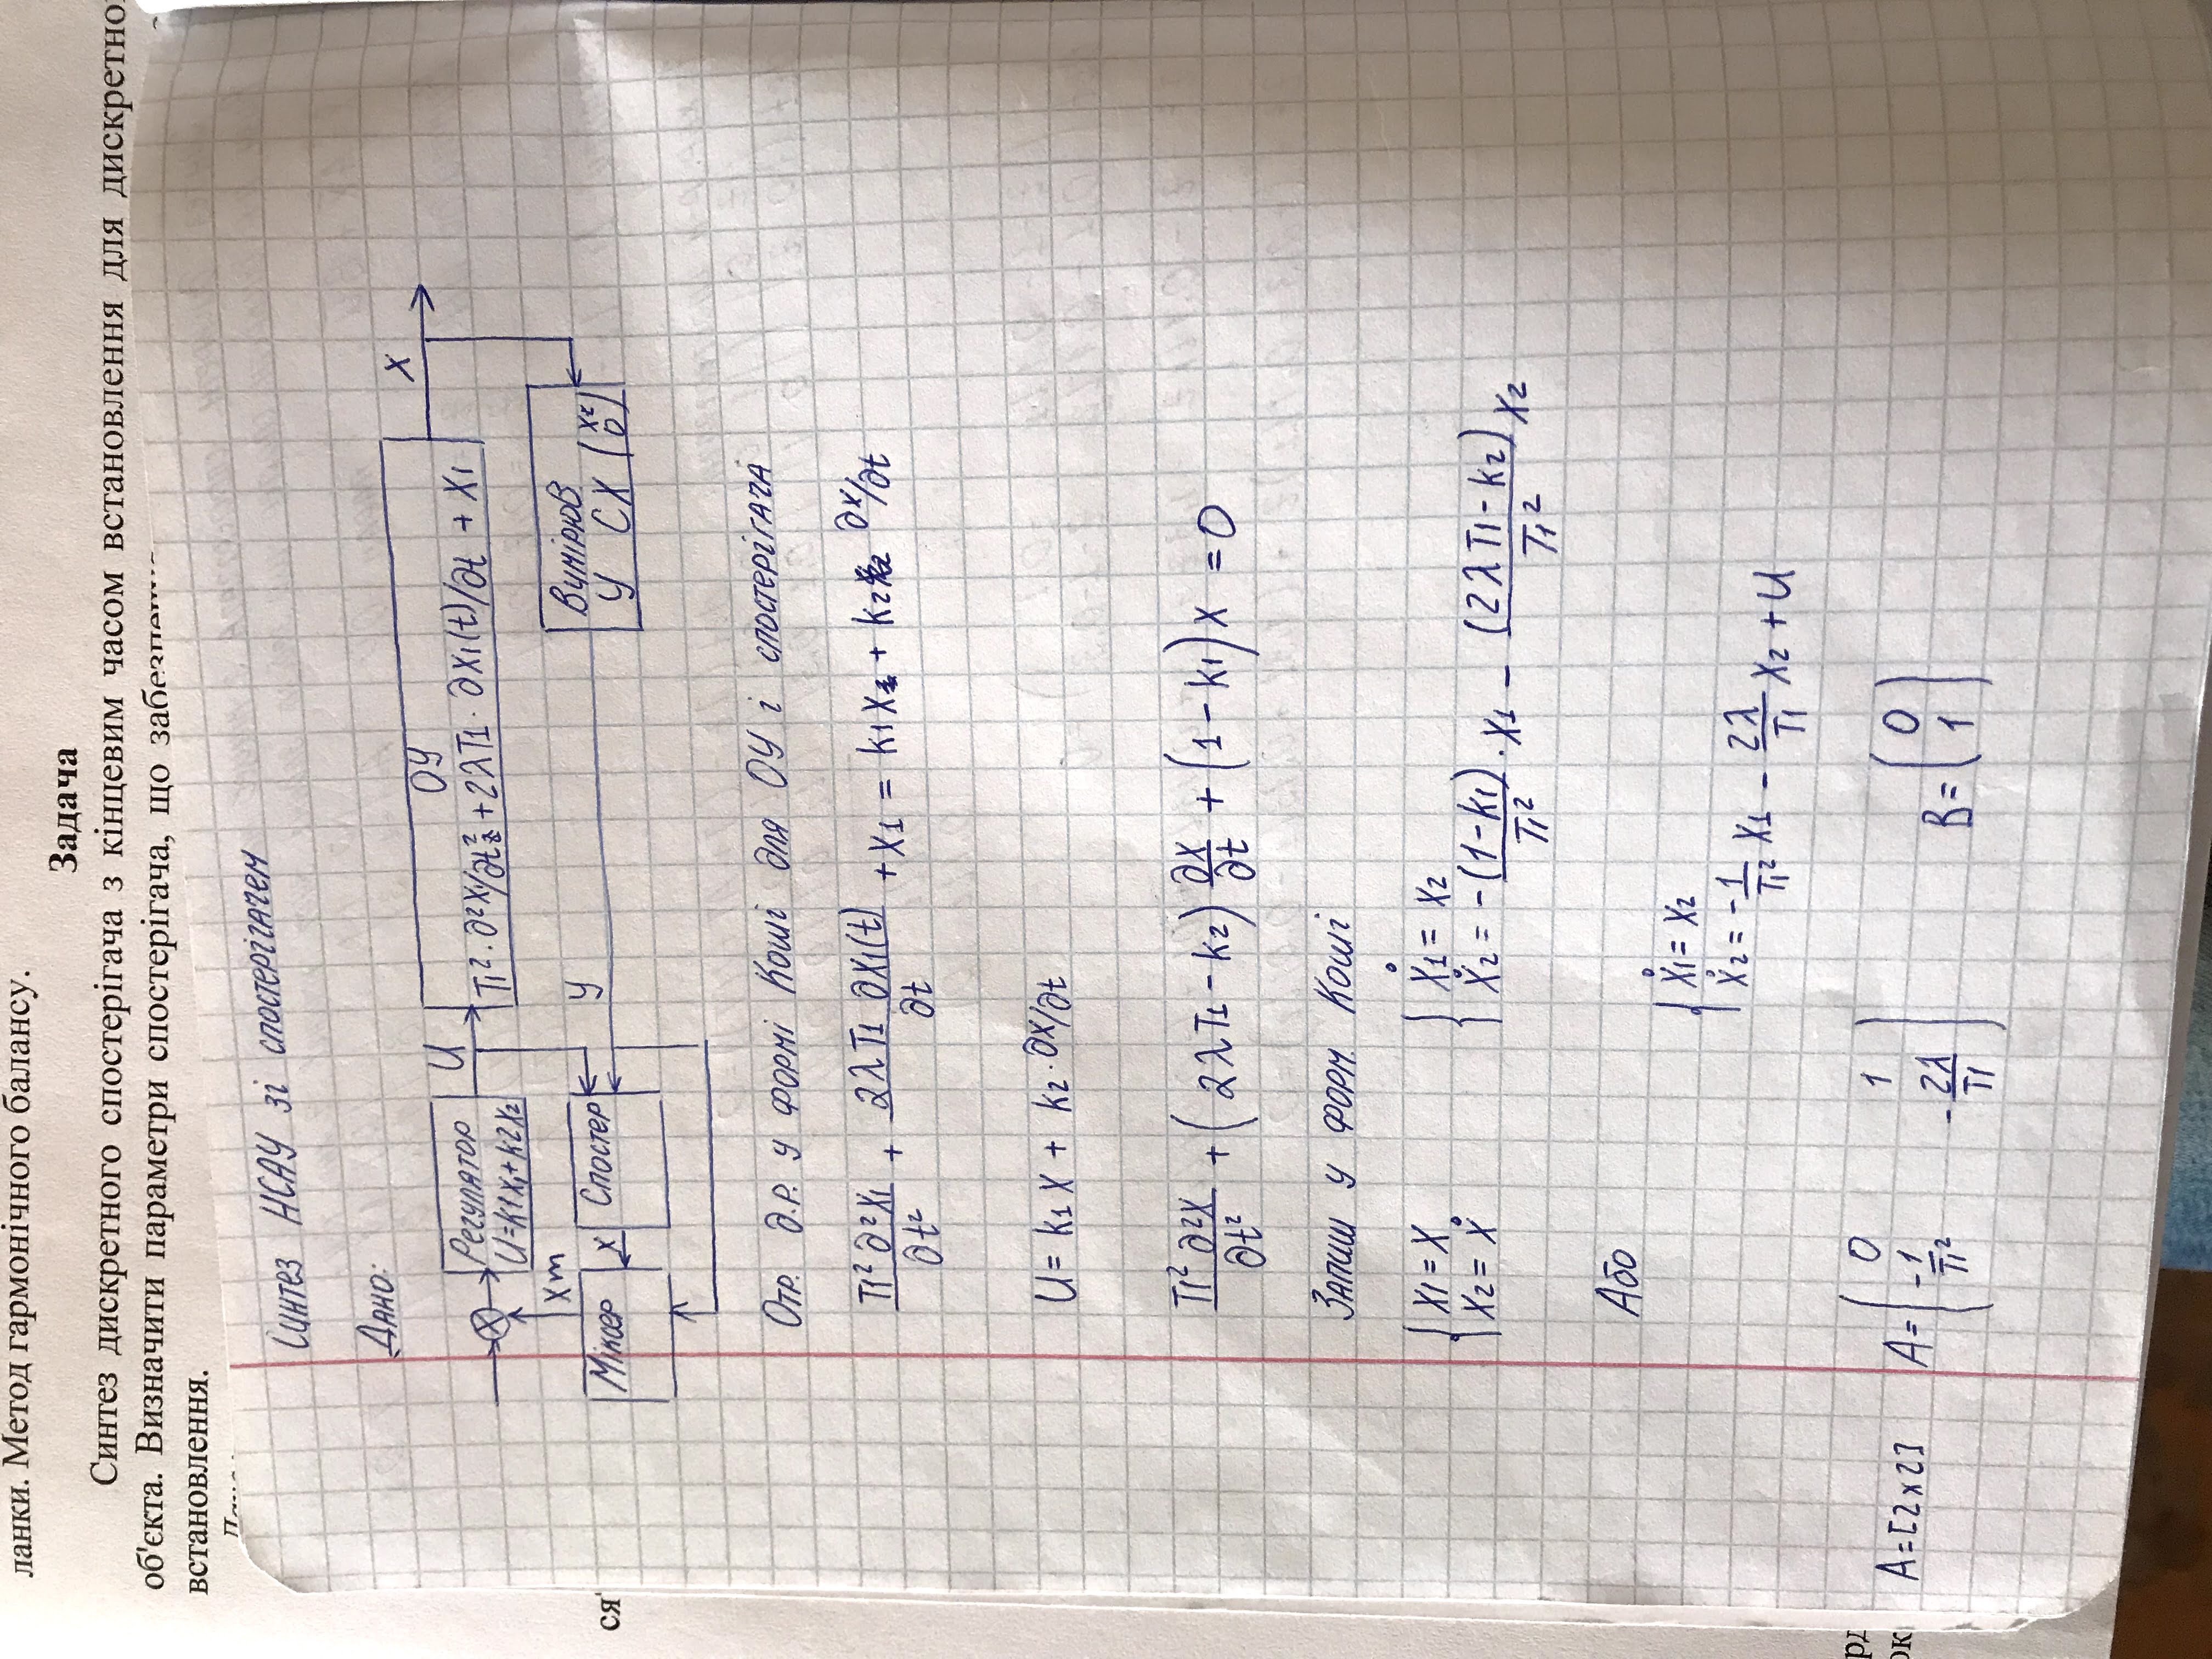 ланки. Метод гармонічного балансу.
Задача
Синтез дискретного спостерігача з кінцевим часом встановлення для дискретно
об'єкта. Визначити параметри спостерігача, що
встановлення.
Синтез НСАУ зі спостерігачем
Дано:
Регулятор
U=k1x1+k2x2
U
ОУ
T1²·∂²x1/∂t²+2λT1·∂x1(t)/∂t + x1
X
xm
Міксер
X
Спостер
У
Вимірюв
У CX (x2 0)
ся
Отр. д.р. у формі Коші для ОУ і спостерігача
T1²∂²x1/∂t² + 2λT1 ∂x1(t)/∂t + x1 = k1x + k2 ∂x/∂t
U = k1 x + k2·∂x/∂t
T1²∂²x/∂t² + (2λT1 - k2) ∂x/∂t + (1 - k1) x = 0
Запиш у форм. Коші
{ x1 = x { ẋ1 = x2
{ x2 = ẋ { ẋ2 = -(1-k1)/T1² · x1 - (2λT1-k2)/T1² x2
Або
{ ẋ1 = x2
{ ẋ2 = -1/T1² x1 - 2λ/T1 x2 + U
A=[2x2] A = (0 1 -1/T1² -2λ/T1) B = (0 1)